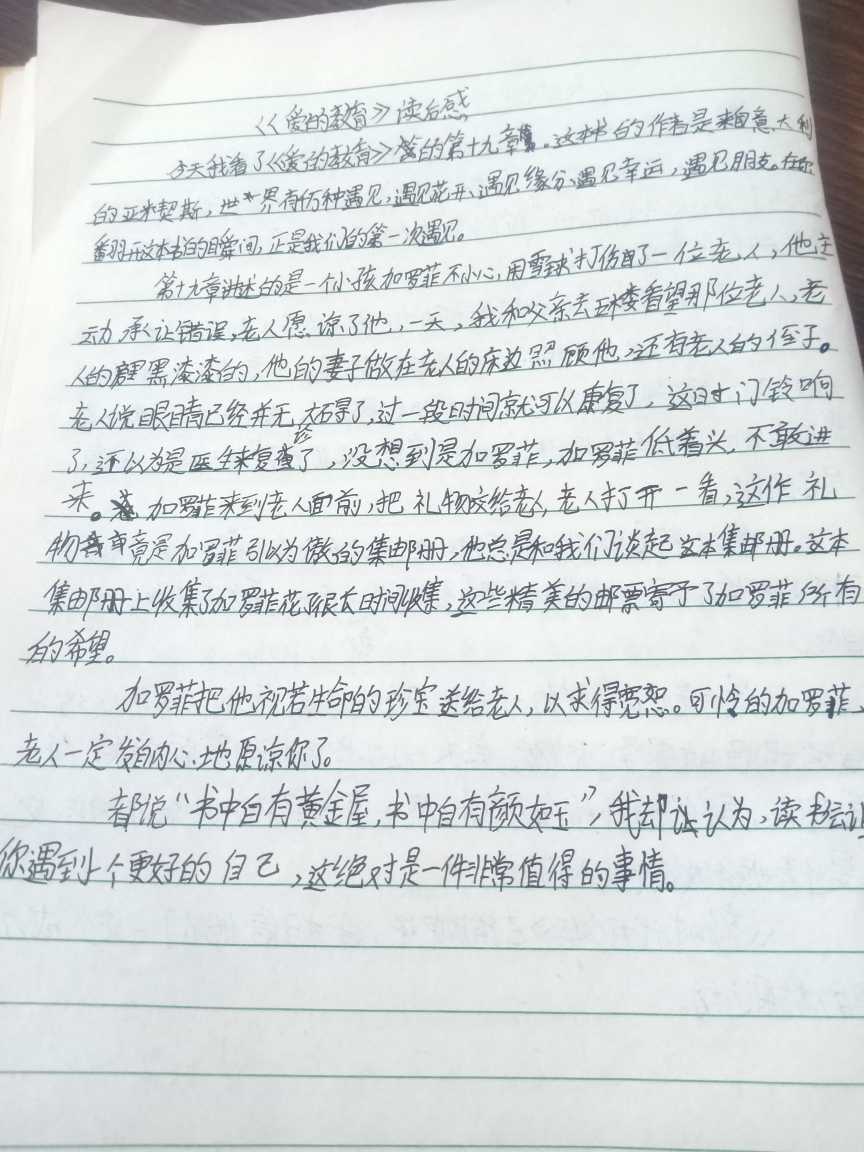 《爱的教育》读后感
今天我看了《爱的教育》的第十九章。这本书的作者是来自意大利
的亚米契斯，世界有万种遇见，遇见花开、遇见缘分、遇见幸运，遇见朋友。在你
翻开这本书的瞬间，正是我们的第一次遇见。
第十九章讲述的是一个小孩加罗菲不小心，用雪球打伤了一位老人，他主
动承让错误，老人愿谅了他，一天，我和父亲去五楼看望那位老人，老
人的屋里黑漆漆的，他的妻子做在老人的床边照顾他，还有老人的侄子。
老人说眼睛已经并无大碍了，过一段时间就可以康复了，这时门铃响
了，还以为是医生来复诊了，没想到是加罗菲，加罗菲低着头，不敢进
来。加罗菲来到老人面前，把礼物交给老人，老人打开一看，这件礼
物竟是加罗菲引以为傲的集邮册，他总是和我们谈起这本集邮册。这本
集邮册上收集了加罗菲花了很大时间收集，这些精美的邮票寄予了加罗菲所有
的希望。
加罗菲把他视若生命的珍宝送给老人，以求得宽恕。可怜的加罗菲，
老人一定发自内心地原谅你了。
都说“书中自有黄金屋，书中自有颜如玉”，我却认为，读书会让
你遇到一个更好的自己，这绝对是一件非常值得的事情。